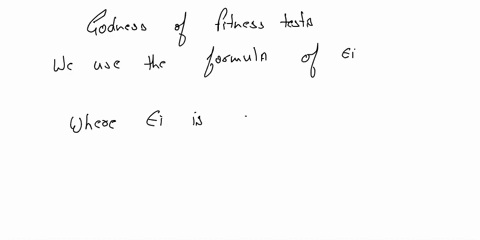 Godness of fitness tests
We use the formula of Ei
Where Ei is